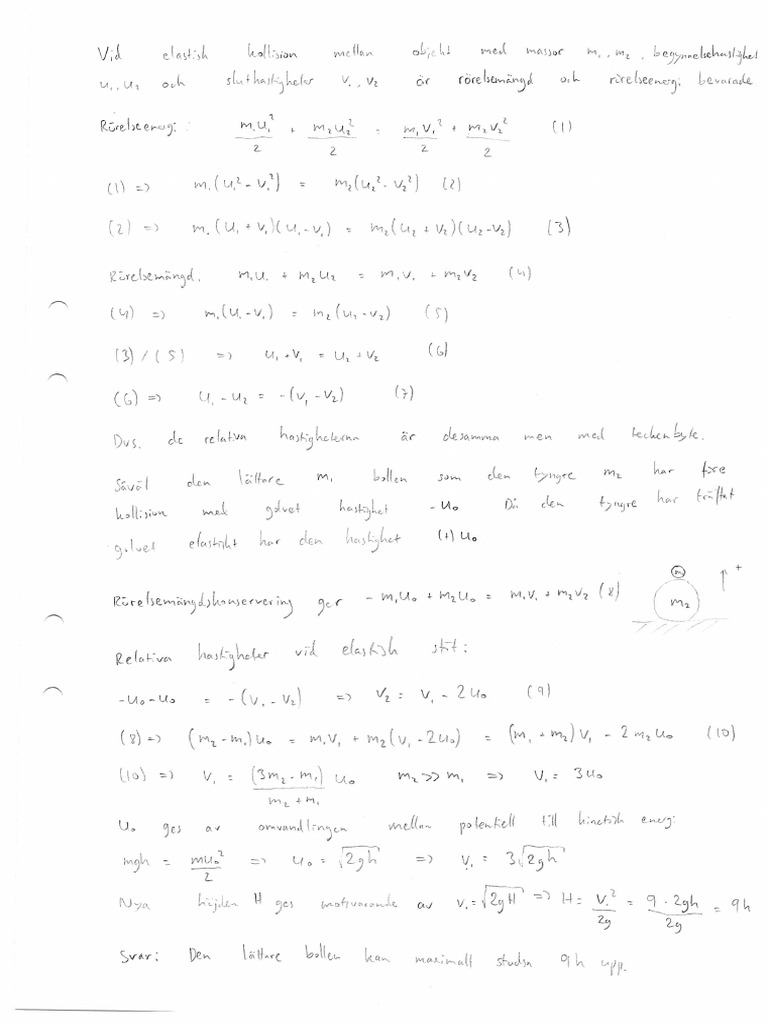 Vid elastisk kollision mellan objekt med massor m₁, m₂, begynnelsehastighet
u₁, u₂ och sluthastigheter v₁, v₂ är rörelsemängd och rörelseenergi bevarade
Rörelseenergi: m₁u₁²/2 + m₂u₂²/2 = m₁v₁²/2 + m₂v₂²/2 (1)
(1) => m₁(u₁² - v₁²) = m₂(u₂² - v₂²) (2)
(2) => m₁(u₁ + v₁)(u₁ - v₁) = m₂(u₂ + v₂)(u₂ - v₂) (3)
Rörelsemängd: m₁u₁ + m₂u₂ = m₁v₁ + m₂v₂ (4)
(4) => m₁(u₁ - v₁) = m₂(u₂ - v₂) (5)
(3)/(5) => u₁ + v₁ = u₂ + v₂ (6)
(6) => u₁ - u₂ = -(v₁ - v₂) (7)
Dvs. de relativa hastigheterna är desamma men med teckenbyte.
Såväl den lättare m₁ bollen som den tyngre m₂ har före
kollision med golvet hastighet -u₀ Då den tyngre har träffat
golvet elastiskt har den hastighet (+)u₀
Rörelsemängdskonservering ger -m₁u₀ + m₂u₀ = m₁v₁ + m₂v₂ (8)
m₁
m₂
+
Relativa hastigheter vid elastisk stöt:
-u₀ - u₀ = -(v₁ - v₂) => v₂ = v₁ - 2u₀ (9)
(8) => (m₂ - m₁)u₀ = m₁v₁ + m₂(v₁ - 2u₀) = (m₁ + m₂)v₁ - 2m₂u₀ (10)
(10) => v₁ = (3m₂ - m₁)/(m₂ + m₁) u₀ m₂ >> m₁ => v₁ = 3u₀
u₀ ges av omvandlingen mellan potentiell till kinetisk energi
mgh = mu₀²/2 => u₀ = √2gh => v₁ = 3√2gh
Nya höjden H ges motsvarande av v₁ = √2gH => H = v₁²/2g = 9 · 2gh/2g = 9h
Svar: Den lättare bollen kan maximalt studsa 9h upp.